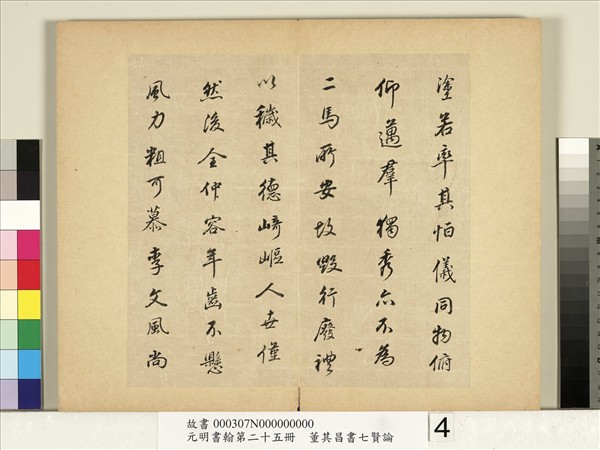 塗若率其怕儀同物俯
仰邁羣獨秀亦不為
二馬所安故毀行廢禮
以穢其德崎嶇人世僅
然後全仲容年齒不懸
風力粗可慕李文風尚
故書 000307N000000000
元明書翰第二十五冊 董其昌書七賢論
4